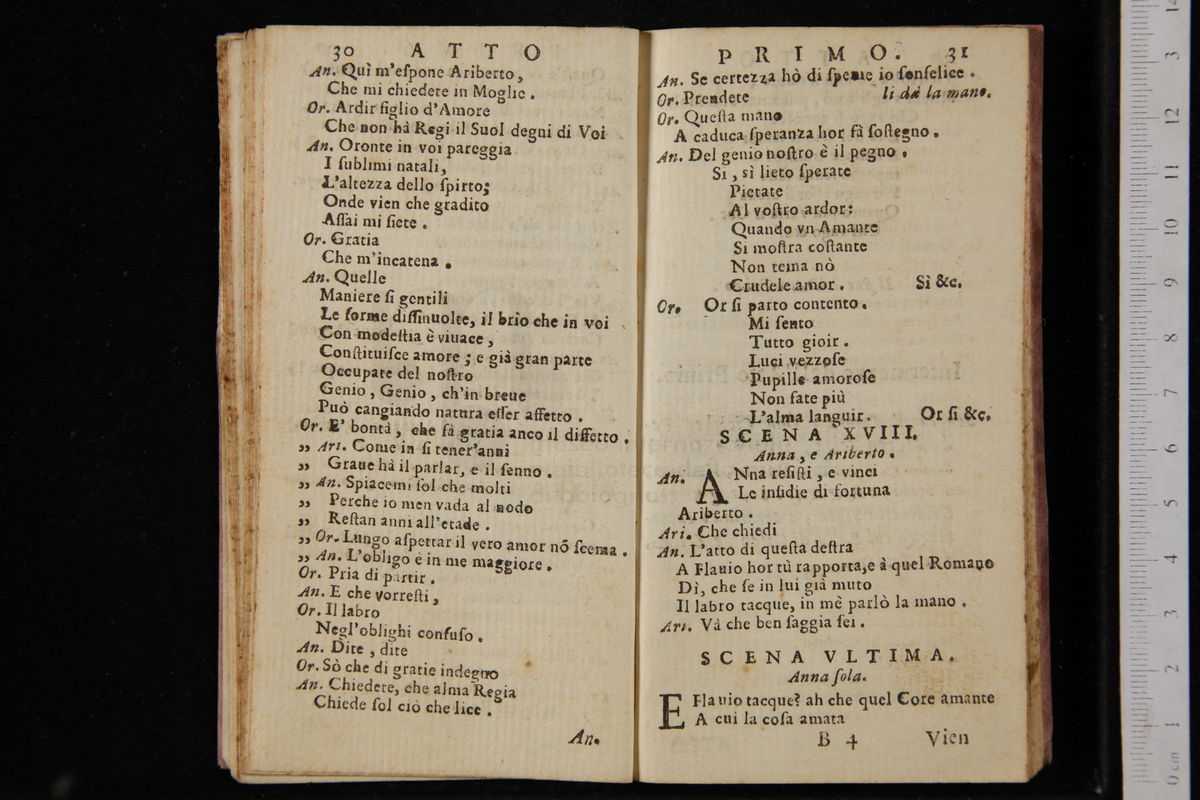 30 ATTO
An. Quì m'eſpone Ariberto,
Che mi chiedere in Moglie.
Or. Ardir figlio d'Amore
Che non hà Regi il Suol degni di Voi
An. Oronte in voi pareggia
I ſublimi natali,
L'altezza dello ſpirto;
Onde vien che gradito
Aſſai mi ſiete.
Or. Gratia
Che m'incatena.
An. Quelle
Maniere ſi gentili
Le forme diſſinuolte, il brìo che in voi
Con modeſtia è viuace,
Conſtituiſce amore; e già gran parte
Occupate del noſtro
Genio, Genio, ch'in breue
Può cangiando natura eſſer affetto.
Or. E' bontà, che fà gratia anco il diffetto.
„ Ari. Come in ſi tener'anni
„ Graue hà il parlar, e il ſenno.
„ An. Spiacemi ſol che molti
„ Perche io men vada al nodo
„ Reſtan anni all'etade.
„ Or. Lungo aſpettar il vero amor nõ ſcema.
„ An. L'obligo è in me maggiore.
Or. Pria di partir.
An. E che vorreſti,
Or. Il labro
Negl'oblighi confuſo.
An. Dite, dite
Or. Sò che di gratie indegno
An. Chiedere, che alma Regia
Chiede ſol ciò che lice.
An.
PRIMO. 31
An. Se certezza hò di ſpeme io ſonfelice.
Or. Prendete li dà la mano.
Or. Queſta mano
A caduca ſperanza hor fà ſoſtegno.
An. Del genio noſtro è il pegno.
Si, sì lieto ſperate
Pietate
Al voſtro ardor:
Quando vn Amante
Si moſtra coſtante
Non tema nò
Crudele amor. Sì &c.
Or. Or ſi parto contento.
Mi ſento
Tutto gioir.
Luci vezzoſe
Pupille amoroſe
Non fate più
L'alma languir. Or ſi &c.
SCENA XVIII.
Anna, e Ariberto.
An. ANna reſiſti, e vinci
Le inſidie di fortuna
Ariberto.
Ari. Che chiedi
An. L'atto di queſta deſtra
A Flauio hor tù rapporta, e à quel Romano
Dì, che ſe in lui già muto
Il labro tacque, in mè parlò la mano.
Ari. Và che ben ſaggia ſei.
SCENA VLTIMA.
Anna ſola.
E Flauio tacque? ah che quel Core amante
A cui la coſa amata
B 4 Vien